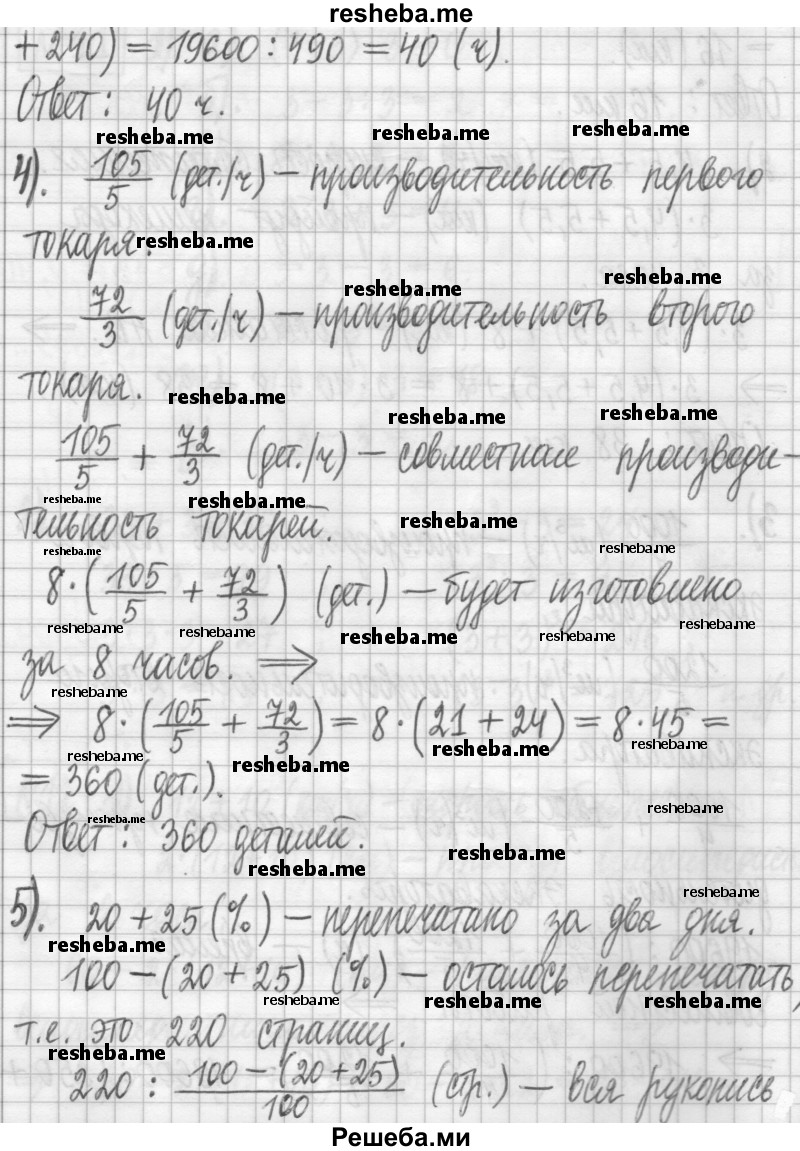 resheba.me
+240) = 19600 : 490 = 40 (ч).
Ответ: 40 ч.
resheba.me resheba.me resheba.me
4). 105/5 (дет./ч) — производительность первого
токаря. resheba.me
resheba.me resheba.me
72/3 (дет./ч) — производительность второго
токаря. resheba.me resheba.me resheba.me
105/5 + 72/3 (дет./ч) — совместная производи-
resheba.me resheba.me resheba.me
тельность токарей.
resheba.me resheba.me
8·(105/5 + 72/3) (дет.) — будет изготовлено
resheba.me resheba.me resheba.me resheba.me resheba.me
за 8 часов. ⟹
resheba.me
⟹ 8·(105/5 + 72/3) = 8·(21 + 24) = 8·45 =
resheba.me resheba.me resheba.me resheba.me
= 360 (дет.).
resheba.me resheba.me
Ответ: 360 деталей.
resheba.me resheba.me
resheba.me
5). 20 + 25 (%) — перепечатано за два дня.
resheba.me
100 — (20 + 25) (%) — осталось перепечатать,
resheba.me resheba.me resheba.me
т.е. это 220 страниц.
resheba.me
220 : 100 — (20 + 25)/100 (стр.) — вся рукопись
Решеба.ми